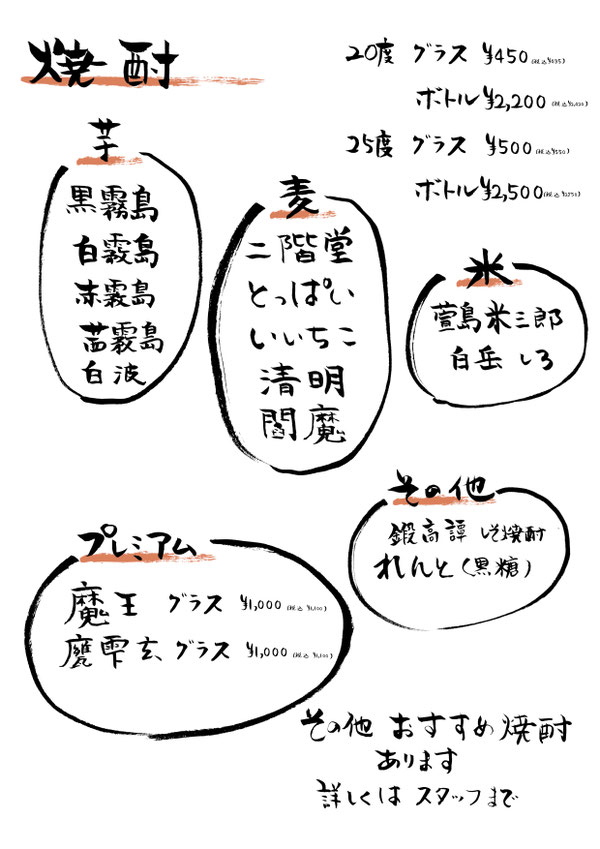 焼酎
20度 グラス ¥450(税込¥495)
ボトル ¥2,200
25度 グラス ¥500(税込¥550)
ボトル ¥2,500
芋
黒霧島
白霧島
赤霧島
茜霧島
白波
麦
二階堂
とっぱい
いいちこ
清明
閻魔
米
萱島米三郎
白岳 しろ
その他
鍛高譚 しそ焼酎
れんと(黒糖)
プレミアム
魔王 グラス ¥1,000(税込¥1,100)
甕雫玄 グラス ¥1,000(税込¥1,100)
その他 おすすめ焼酎
あります
詳しくは スタッフまで